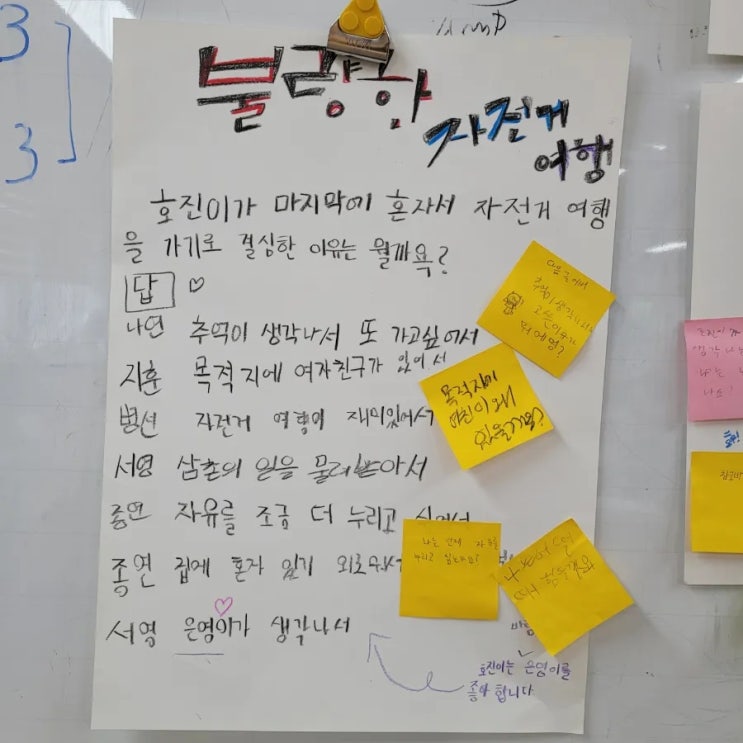 불량한
자전거
여행
호진이가 마지막에 혼자서 자전거 여행
을 가기로 결심한 이유는 뭘까욕?
답 ♡
나연 추억이 생각나서 또 가고싶어서
지훈 목적지에 여자친구가 있어서
병선 자전거 여행이 재미있어서
서영 삼촌의 일을 물려받아서
종연 자유를 조금 더 누리고
종연 집에 혼자 있기 외로워서
서영 은영이가 생각나서
호진이는 은영이를
좋아 합니다
목적지에
여친이 왜
있을까요?
나는 언제 자유를
누리고 있는가요?
3
3